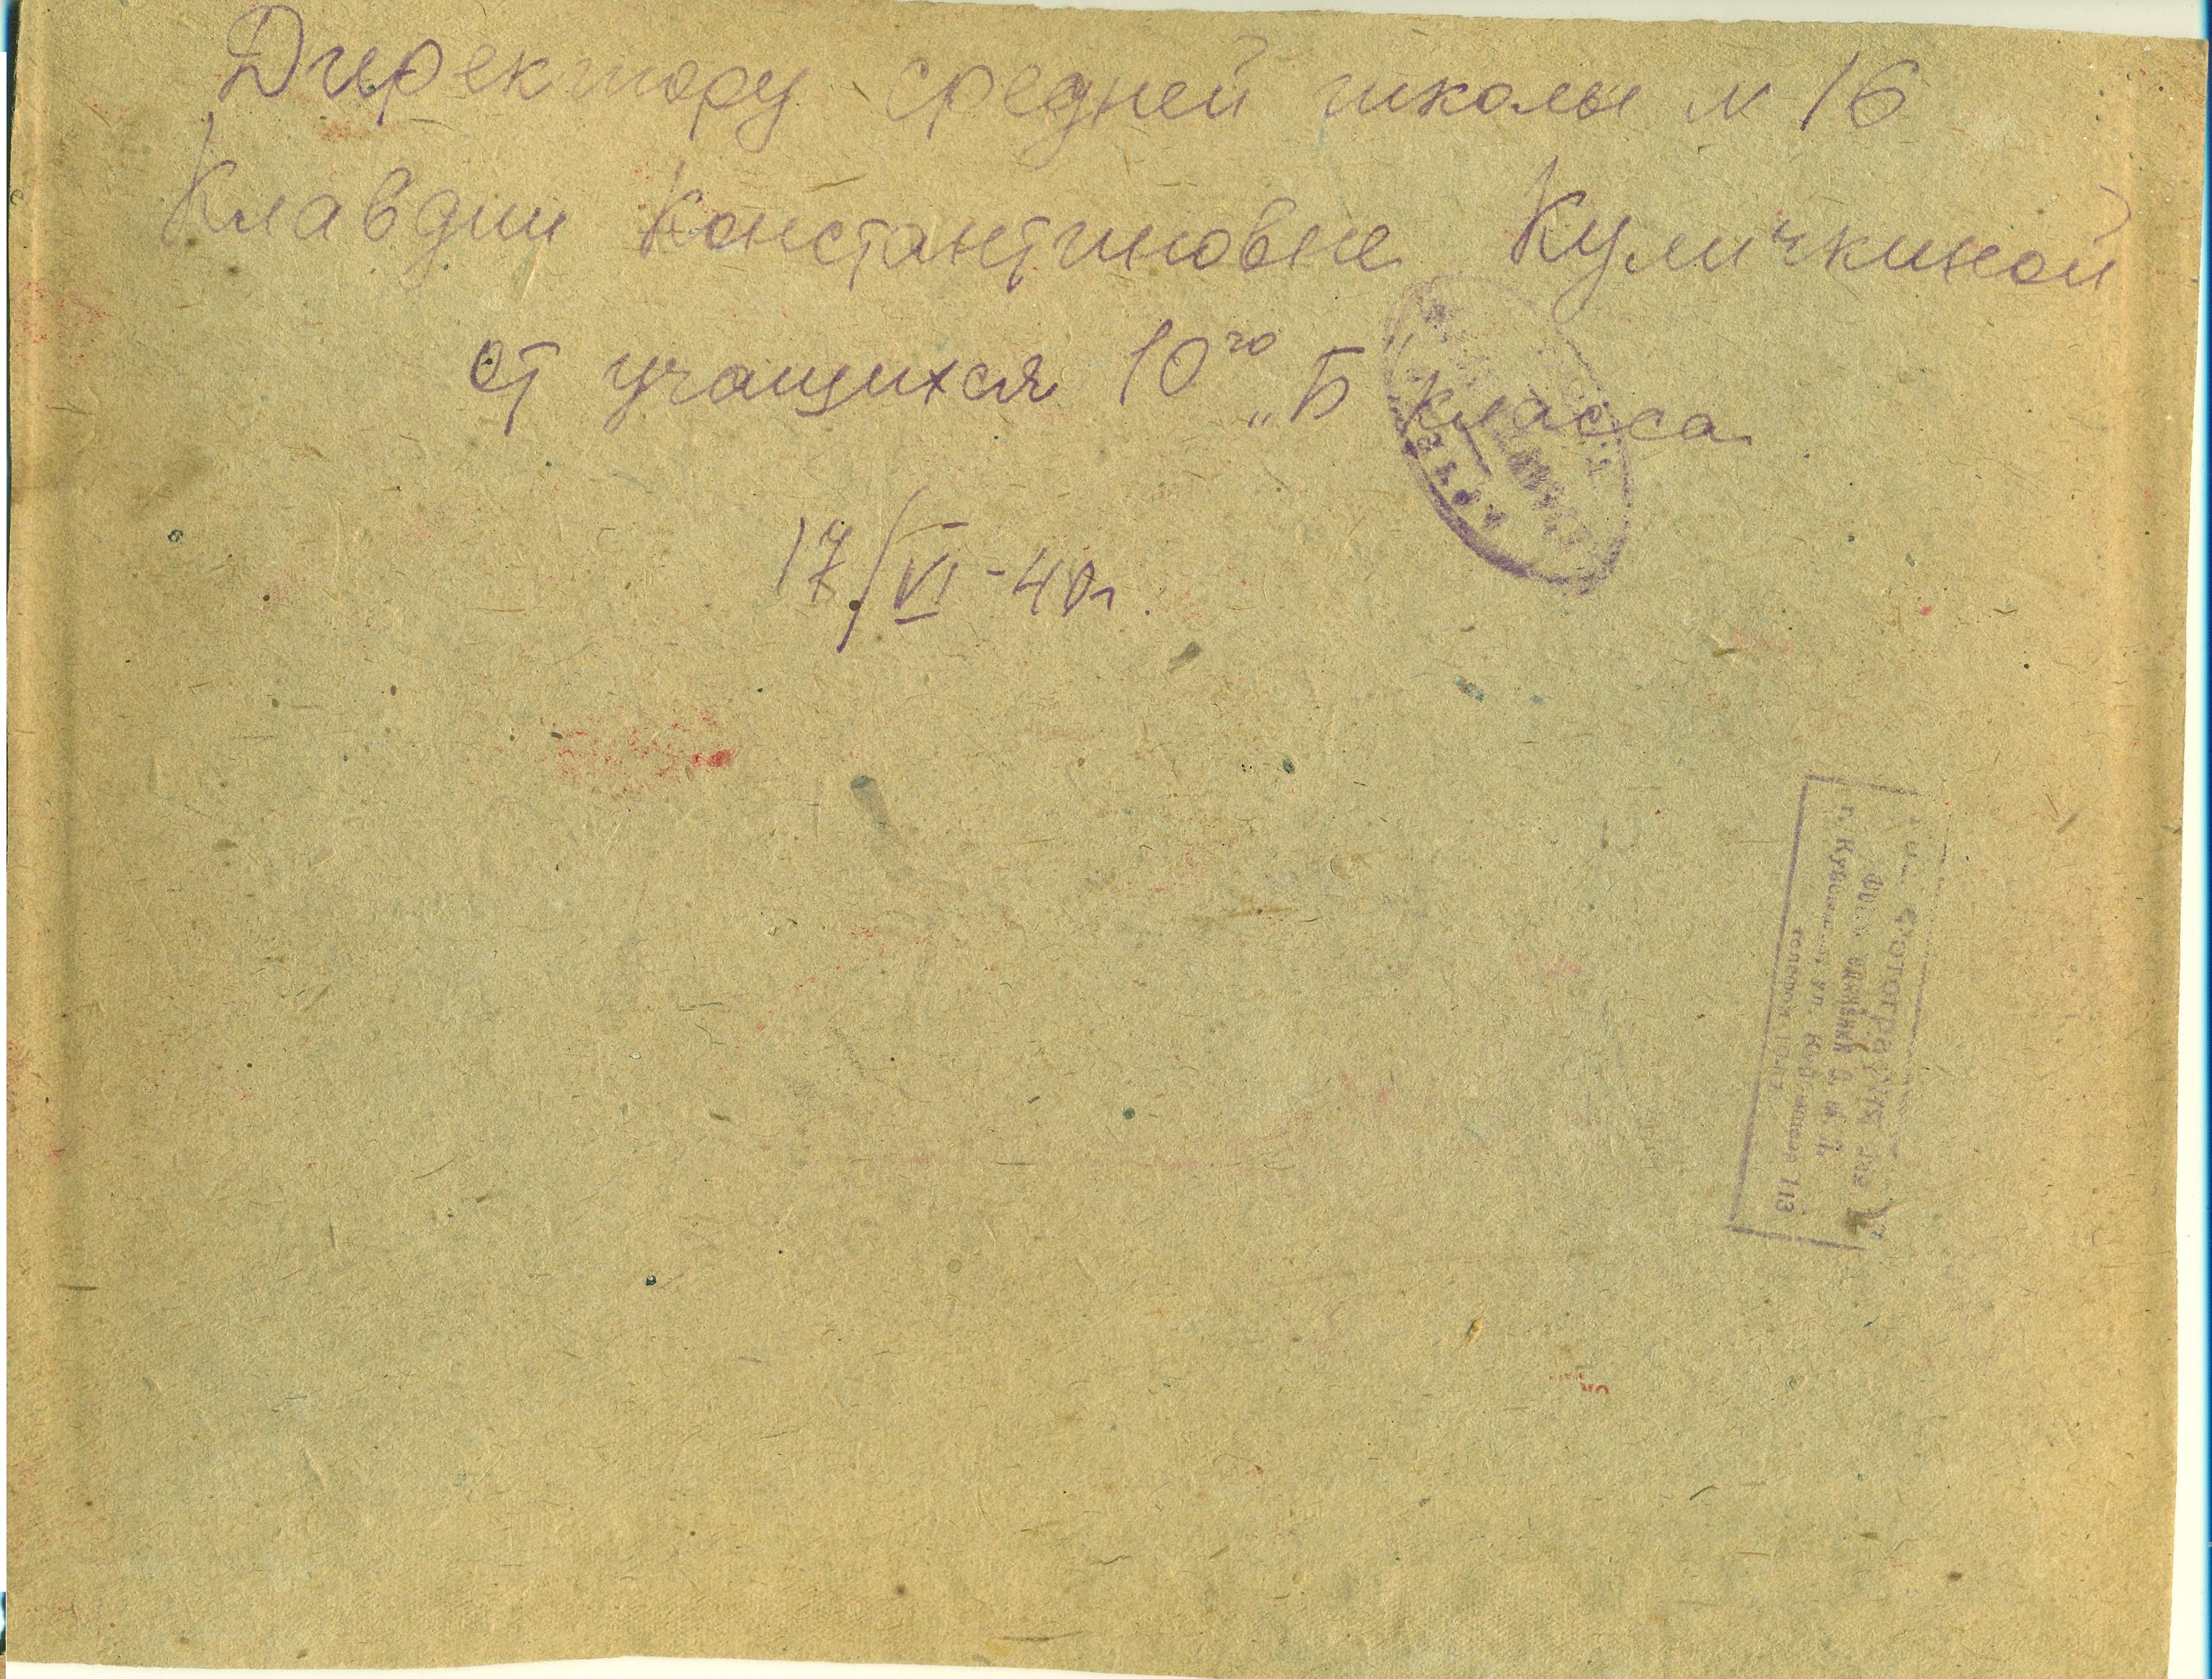 Директору средней школы № 16
Клавдии Константиновне Куличкиной
от учащихся 10го „Б" класса
17/VI-40г.
Фотография
ул.
телефон
113